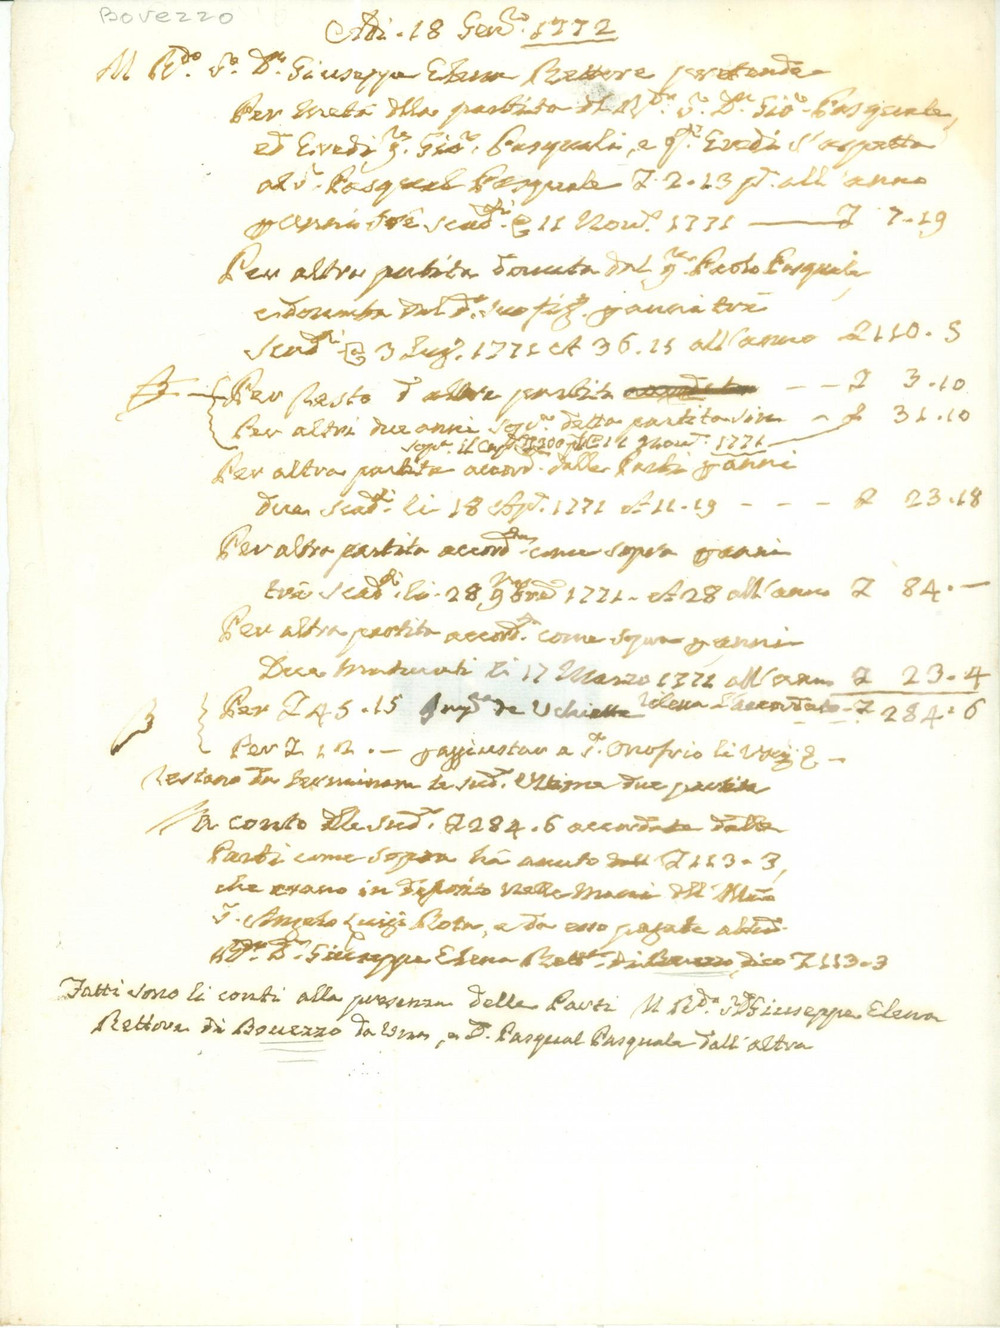 Bovezzo
Adi. 18 Gen.º 1772
Il R.do S.r D.n Giuseppe Elena Rettore pretende
Per metà della partita del R.do S.r D.n Gio. Pasquale,
ed Eredi q. Gio. Pasquali, e q.m Eredi s'aspetta
al S.r Pasqual Pasquale £ 2.13 p. all'anno
p anni tre scad.ti @ 11 Nov. 1771 — £ 7.19
Per altra partita dovuta dal q.m Paolo Pasquale,
e dovuta dal suo fig. p anni tre
Scad.ti @ 3 Lug. 1771 A 36.15 all'anno £110.5
Per Resto d'altra partita — — £ 3.10
Per altri due anni sop.a detta partita sin — £ 31.10
sop.a il Cap. £ 300 11 Nov. 1771
Per altra partita accord. dalle Parti p anni
due scad.ti li 18 Ap. 1771 A 11.19 - - - £ 23.18
Per altra partita accord. come sopra p anni
tre scad.ti li 28 1771 A 28 all'anno £ 84.—
Per altra partita accord. come sopra p anni
Due maturati li 17 Marzo 1771 all'anno £ 23.4
Per £ 45.15 £ 284.6
Per £ 12.— p aggiustar a S. Onofrio li
Restano da terminare le sud. Ultime due partite
A conto delle sud. £ 284.6 accordate dalle
Parti come sopra ha avuto £ 113.3,
che erano in deposito nelle mani del
S.r Angelo Luigi Rota, e da esso pagate al
R.do D.n Giuseppe Elena Rett. di Bovezzo, dico £ 113.3
Fatti sono li conti alla presenza delle Parti Il R.do S.r D. Giuseppe Elena
Rettore di Bouezzo da una, e D. Pasqual Pasquale dall'altra